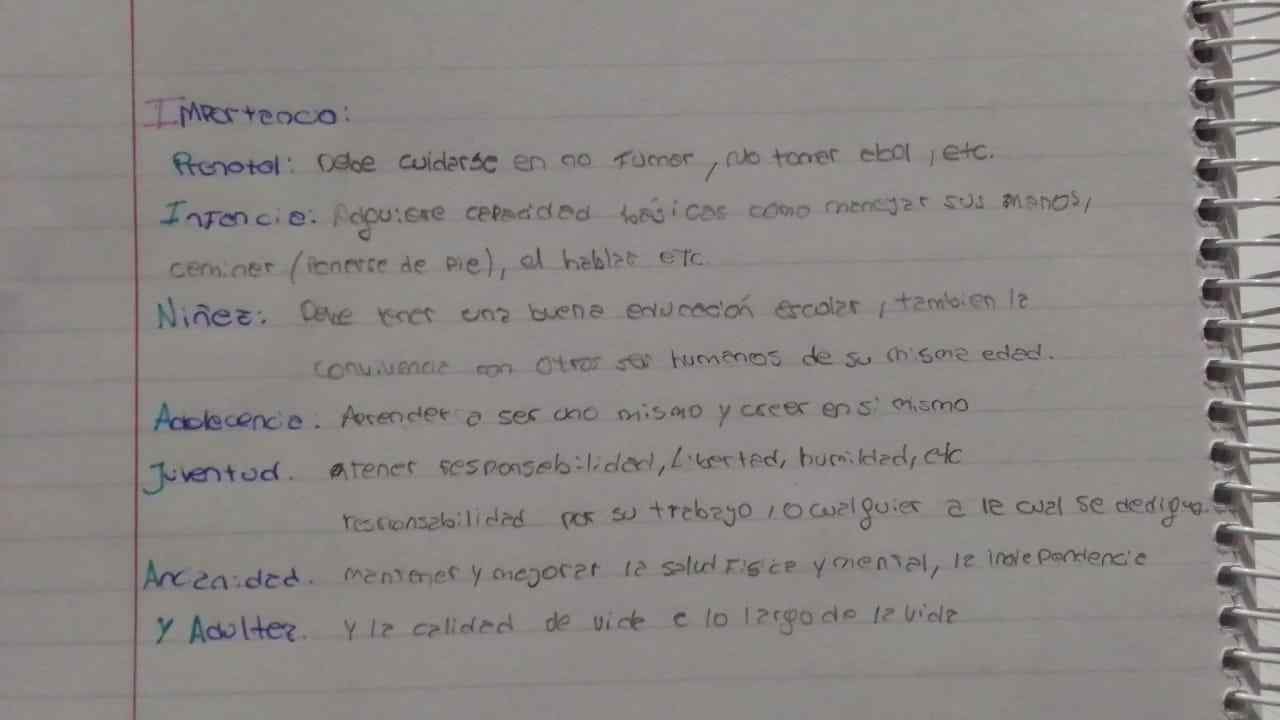 Importanca:
Prenatal: Debe cuidarse en no fumar, No tomar , etc.
Infancia: Adquiere capacidad básicas como manejar sus manos,
caminar (Ponerse de pie), al hablar etc.
Niñez: Debe tener una buena educación escolar, tambien la
convivencia con otros ser humanos de su misma edad.
Adolecencia: Aprender a ser uno mismo y creer en si mismo
Juventud. tener responsabilidad, libertad, humildad, etc
responsabilidad por su trabajo, o cualquier a la cual se dedique.
Ancanidad. mantener y mejorar la salud fisica y mental, la independencia
Y Adultez. Y la calidad de vida a lo largo de la vida